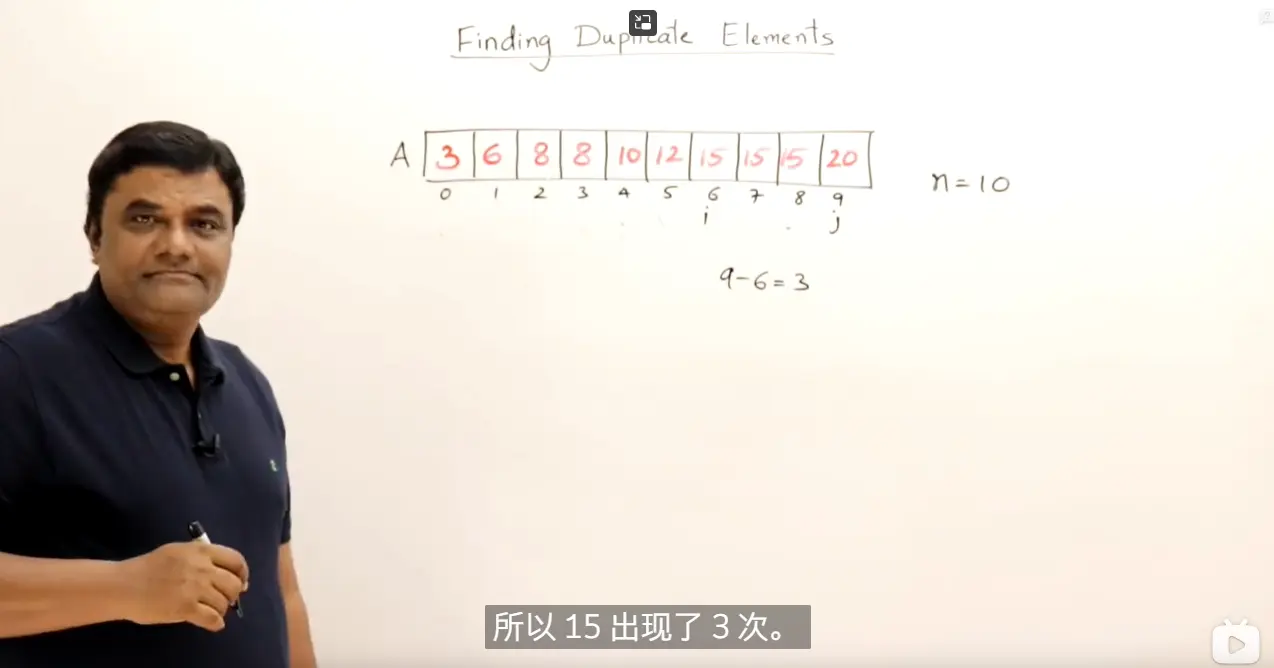 Finding Duplicate Elements
A 3 6 8 8 10 12 15 15 15 20
0 1 2 3 4 5 6 7 8 9
n = 10
i j
9-6=3
所以 15 出现了 3 次。